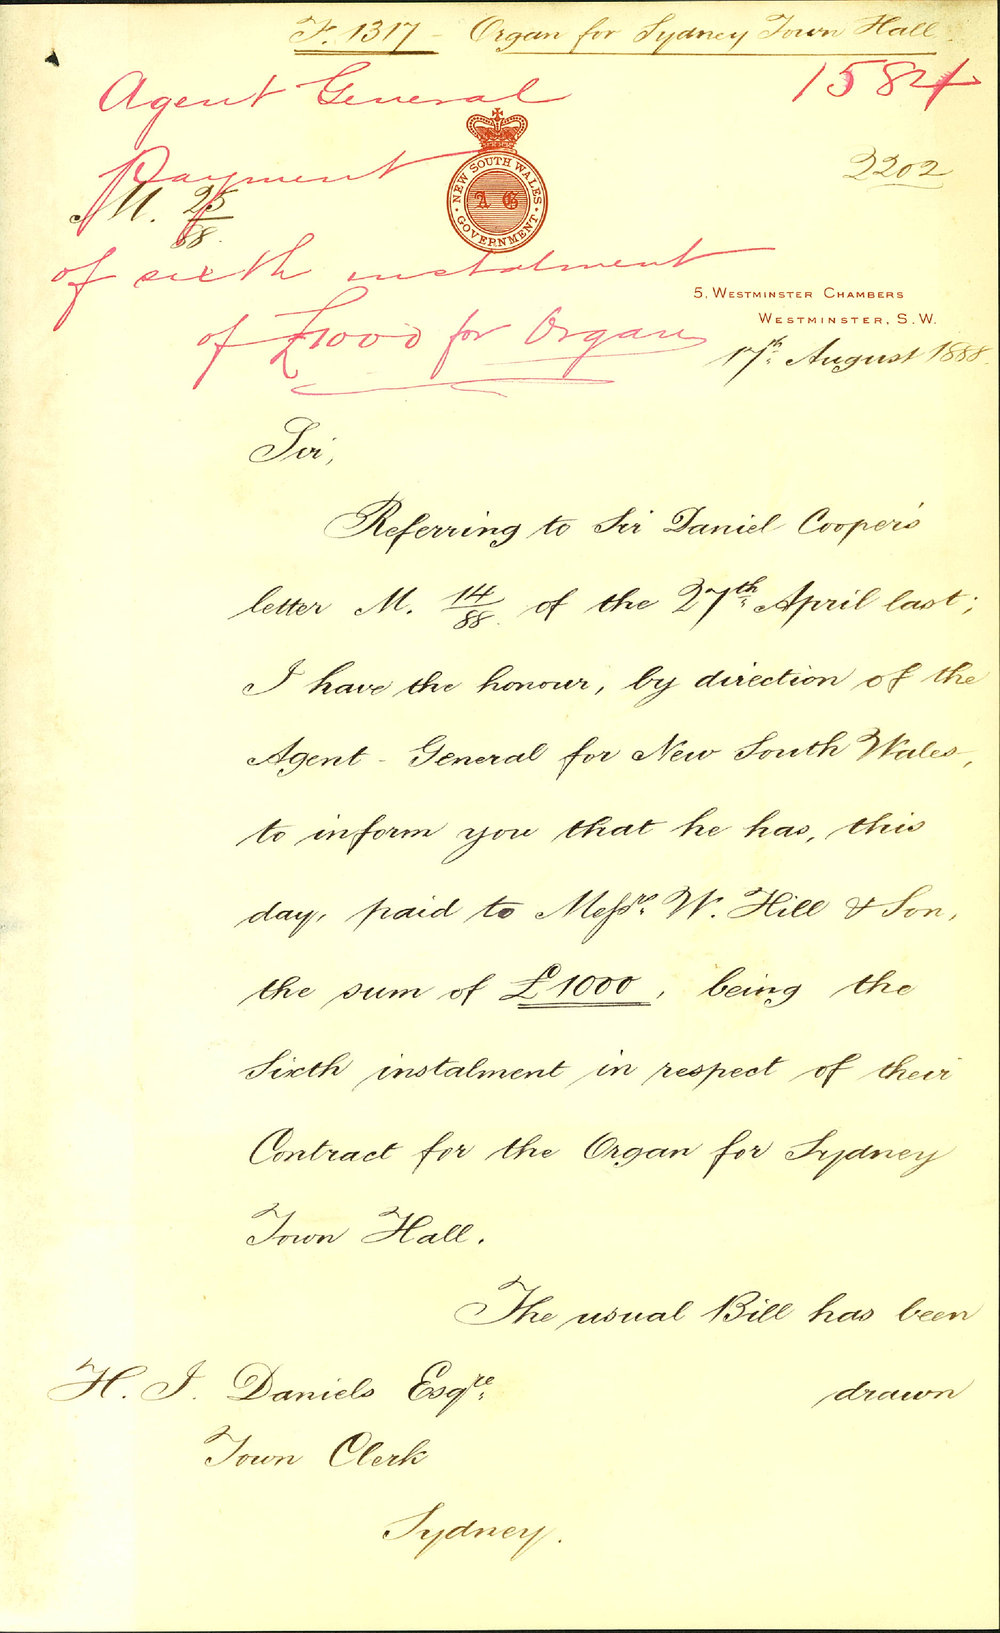 F. 1317 - Organ for Sydney Town Hall
1584
Agent General
2202
Payment
M. 25/88.
NEW SOUTH WALES GOVERNMENT
A G
of sixth instalment
of £1000 for Organ
5, WESTMINSTER CHAMBERS
WESTMINSTER, S.W.
17th August 1888.
Sir,
Referring to Sir Daniel Cooper's
letter M. 14/88. of the 27th April last;
I have the honour, by direction of the
Agent-General for New South Wales,
to inform you that he has, this
day, paid to Messrs. W. Hill & Son,
the sum of £1000, being the
Sixth instalment in respect of their
Contract for the Organ for Sydney
Town Hall.
The usual Bill has been
H. J. Daniels Esqre.
drawn
Town Clerk
Sydney.